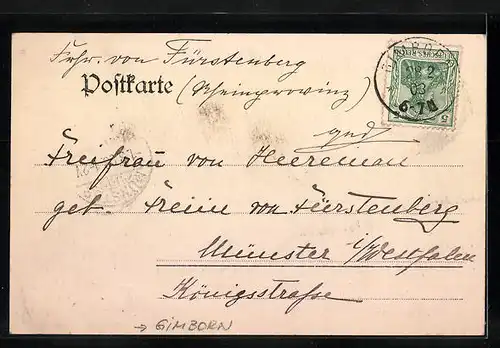 Frhr. von Fürstenberg
Postkarte (Rheinprovinz)
Freifrau von Heereman
geb. Freiin von Fürstenberg
Münster i/Westfalen
Königsstrasse
→ GIMBORN